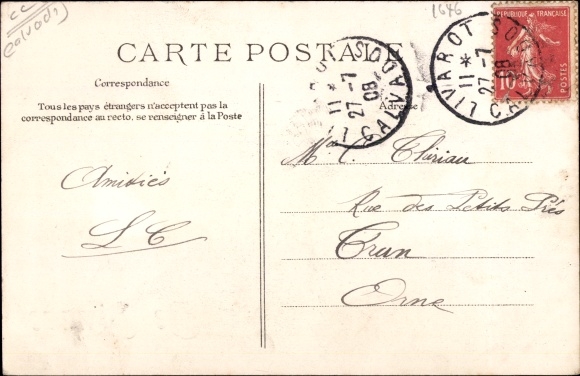 CC
Calvados
1646
CARTE POSTALE
RÉPUBLIQUE FRANÇAISE
10
POSTES
LIVAROT
11 *
27-7
08
CALVADOS
11 *
27-7
08
CALVADOS
Correspondance
Adresse
Tous les pays étrangers n'acceptent pas la
correspondance au recto, se renseigner à la Poste
Amitiés
L C
C. Thiriau
Rue des Petits Prés
Trun
Orne